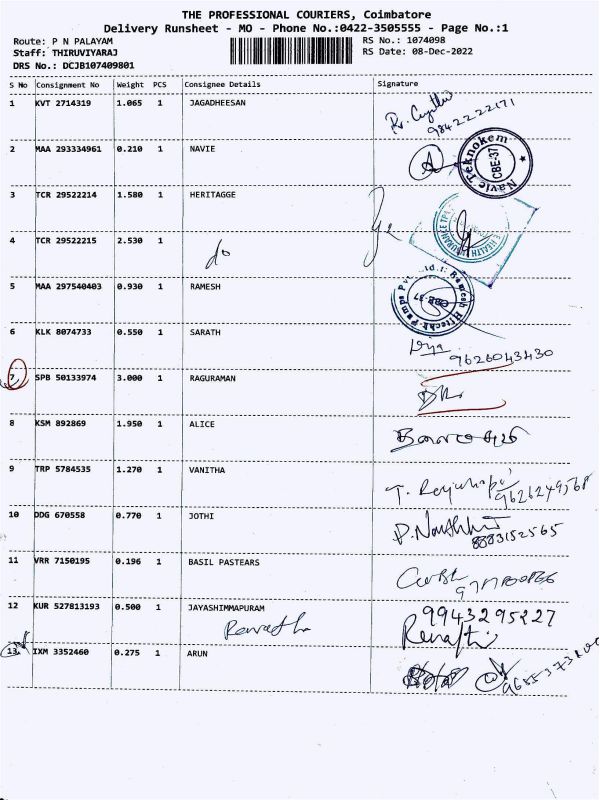 THE PROFESSIONAL COURIERS, Coimbatore
Delivery Runsheet - MO - Phone No.:0422-3505555 - Page No.:1
Route: P N PALAYAM RS No.: 1074098
Staff: THIRUVIYARAJ RS Date: 08-Dec-2022
DRS No.: DCJB107409801
S No Consignment No Weight PCS Consignee Details Signature
1 KVT 2714319 1.065 1 JAGADHEESAN
9842222171
2 MAA 293334961 0.210 1 NAVIE
Navie Teknokem CBE-37
3 TCR 29522214 1.580 1 HERITAGGE
4 TCR 29522215 2.530 1
do
5 MAA 297540403 0.930 1 RAMESH
Ramesh Hitecht Pumps Pvt. Ltd. CBE-37
6 KLK 8074733 0.550 1 SARATH
Divya
9626043430
7 SPB 50133974 3.000 1 RAGURAMAN
8 KSM 892869 1.950 1 ALICE
9 TRP 5784535 1.270 1 VANITHA
9626249568
10 DDG 670558 0.770 1 JOTHI
8883152565
11 VRR 7150195 0.196 1 BASIL PASTEARS
12 KUR 527813193 0.500 1 JAYASHIMMAPURAM
9943295227
13 IXM 3352460 0.275 1 ARUN